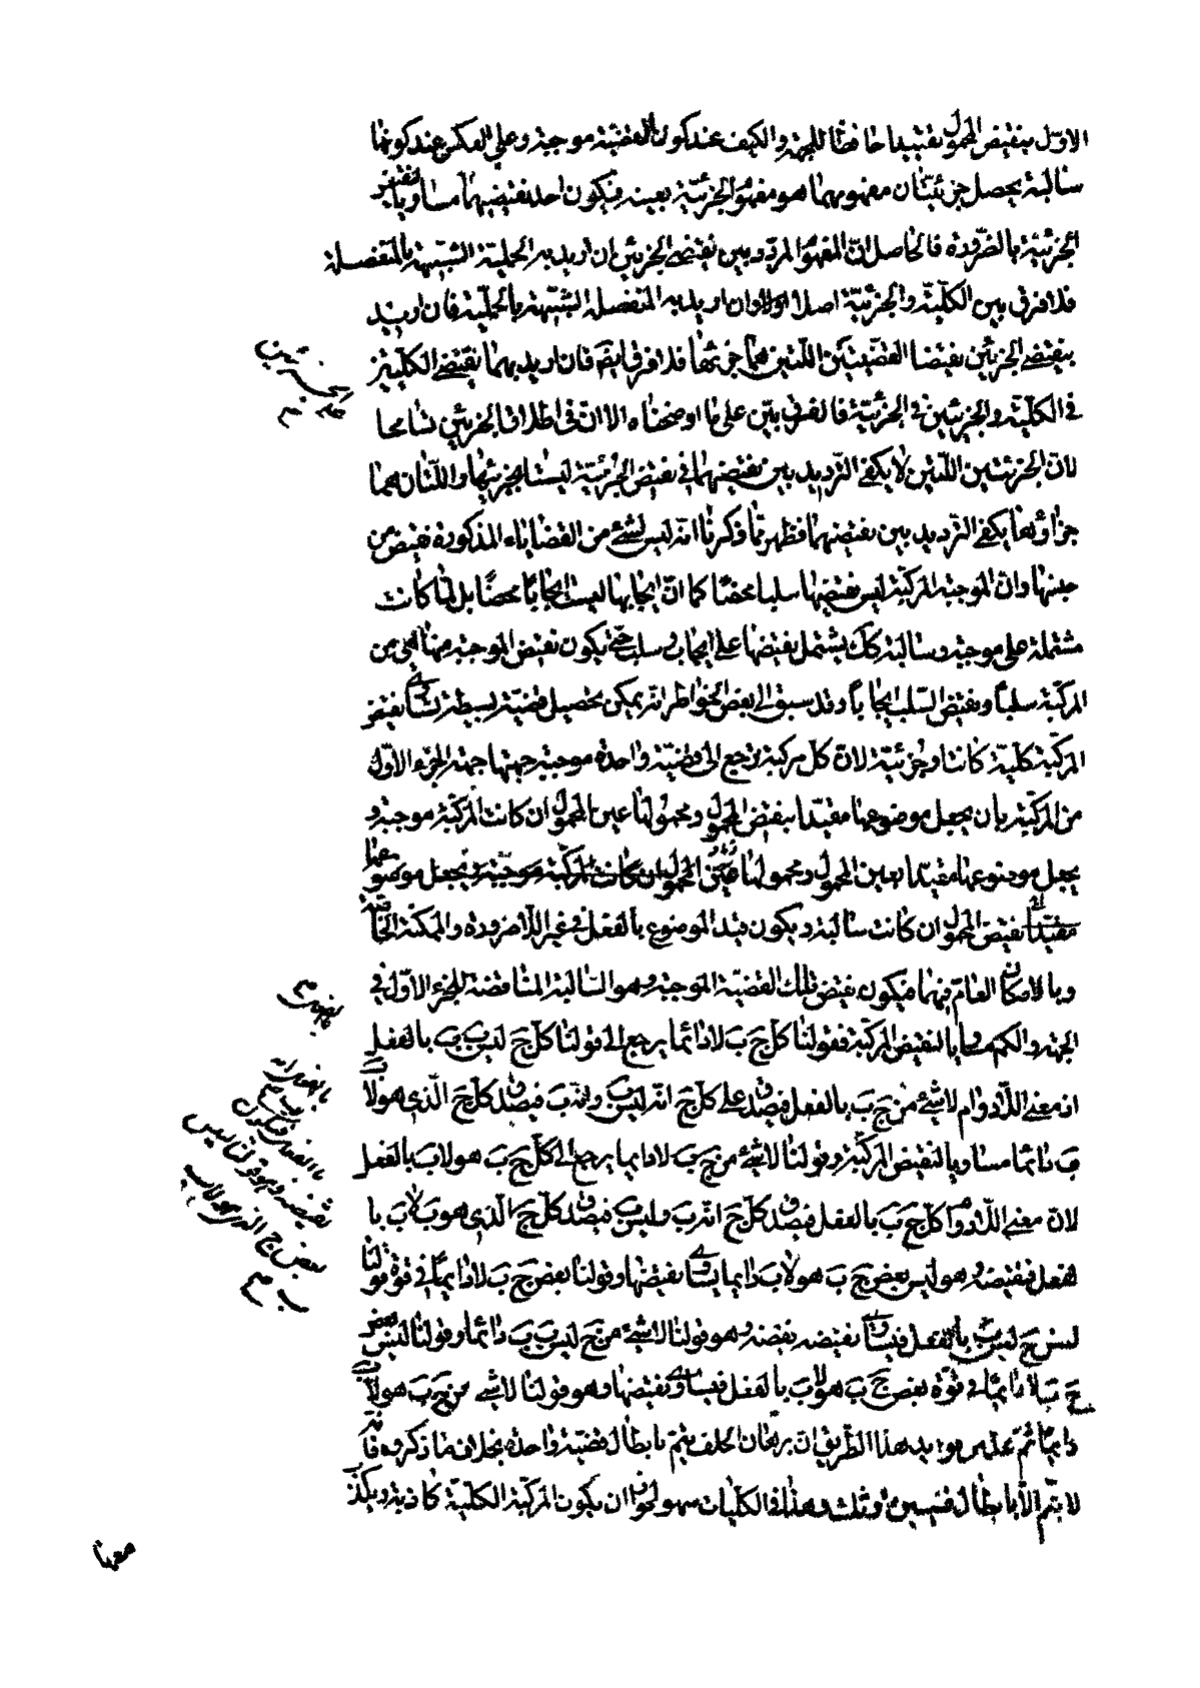 الاوّل بنقيض المحمول تقييدا حافظا للجهة والكيف عند كون القضيّة موجبة وعلى العكس عند كونها
سالبة يحصل جزئيّتان مفهومهما هو مفهوم الجزئيّة بعينه فيكون احد نقيضيهما مساويا لنقيض
الجزئيّة بالضّرورة فالحاصل انّ المفهوم المردّد بين نقيضى الجزئين ان اريد به الحمليّة الشبيهة بالمنفصلة
فلا فرق بين الكلّيّة والجزئيّة اصلا وان اريد به المنفصلة الشبيهة بالحمليّة فان اريد
بنقيضى الجزئين نقيضا القضيّتين اللّتين هما جزئاها فلا فرق ايضا فان اريد بهما نقيضى الكلّيتين
فى الكلّيّة والجزئيتين فى الجزئيّة فالفرق بيّن على ما اوضحناه الا انّ فى اطلاق الجزئين تسامحا
لانّ الجزئيتين اللّتين لا يكفى التّرديد بين نقيضيهما فى نقيض الجزئيّة ليستا بجزئيها واللّتان هما
جزاؤها يكفى التّرديد بين نقيضيهما فظهر ممّا ذكرنا انّه ليس لشئ من القضايا المذكورة نقيض من
جنسها وانّ الموجبة المركّبة ليس نقيضها سلبا محضا كما انّ ايجابها ليست ايجابا محضا بل لمّا كانت
مشتملة على موجبة وسالبة كذلك يشتمل نقيضها على ايجاب وسلب حتى يكون نقيض الموجبة منها اعنى من
المركّبة سلبا ونقيض السّلب ايجابا وقد سبق الى بعض الخواطر انّه يمكن تحصيل قضيّة بسيطة تساوى نقيض
المركّبة كلّية كانت او جزئيّة لانّ كلّ مركبة ترجع الى قضيّة واحدة موجبة جهتها جهة الجزء الاوّل
من المركّبة بان يجعل موضوعها مقيّدا بنقيض المحمول ومحمولها عين المحمول ان كانت المركّبة موجبة و
يجعل موضوعها مقيّدا بعين المحمول ومحمولها عين المحمول ان كانت المركّبة موجبة ويجعل موضوعها
مقيّدا نقيض المحمول ان كانت سالبة ويكون قيد الموضوع بالفعل فى غير اللّاضرورة والممكنة الخاصّة
وبالامكان العامّ فيهما فيكون نقيض تلك القضيّة الموجبة وهو السّالبة المناقضة للجزء الاوّل فى
الجهة والكم مساويا لنقيض المركّبة فقولنا كلّ ج ب لا دائما يرجع الى قولنا كلّ ج ليس ب ب بالفعل
اذ معنى اللّادوام لا شئ من ج ب بالفعل فيصدق على كلّ ج انّه ليس ب وانّه ب فيصدق كلّ ج الّذى هو لا ب
ب دائما مساويا لنقيض المركّبة وقولنا لا شئ من ج ب لا دايما يرجع الى كلّ ج ب هو لا ب بالفعل
لانّ معنى اللّادوام كلّ ج ب بالفعل فيصدق كلّ ج انّه ب وليس ب فيصدق كلّ ج الّذى هو ب لا ب با
لفعل فنقيضه وهو ليس بعض ج ب هو لا ب دايما يساوى نقيضها وقولنا بعض ج ب لا دايما فى قوّة قولنا
ليس ج ليس ب بالفعل فيساوى نقيضه نقيضه وهو قولنا لا شئ من ج ليس ب ب دائما وقولنا ليس بعض
ج ب لا دايما فى قوّة بعض ج ب هو لا ب بالفعل فيساوى نقيضها وهو قولنا لا شئ من ج ب هو لا ب
دايما ثمّ هذا الطّريق انّ برهان الخلف يتمّ بابطال قضيّة واحدة بخلاف ما ذكروه فانّه
لا يتمّ الّا بابطال قضيتين او ثلث وهذا فى الكلّيات سهو لجواز ان يكون المركّبة الكلّيّة كاذبة ويكذب
معها